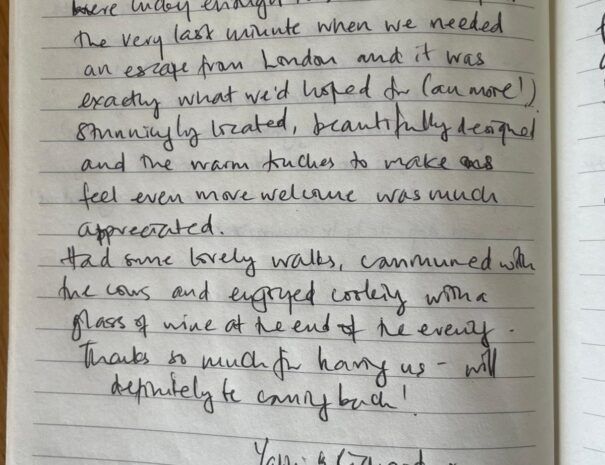 were lucky enough
the very last minute when we needed
an escape from London and it was
exactly what we'd hoped for (an more!)
Stunningly located, beautifully designed
and the warm touches to make us
feel even more welcome was much
appreciated.
Had some lovely walks, communed with
the cows and enjoyed cooking with a
glass of wine at the end of the evening.
Thanks so much for having us - will
definitely be coming back!